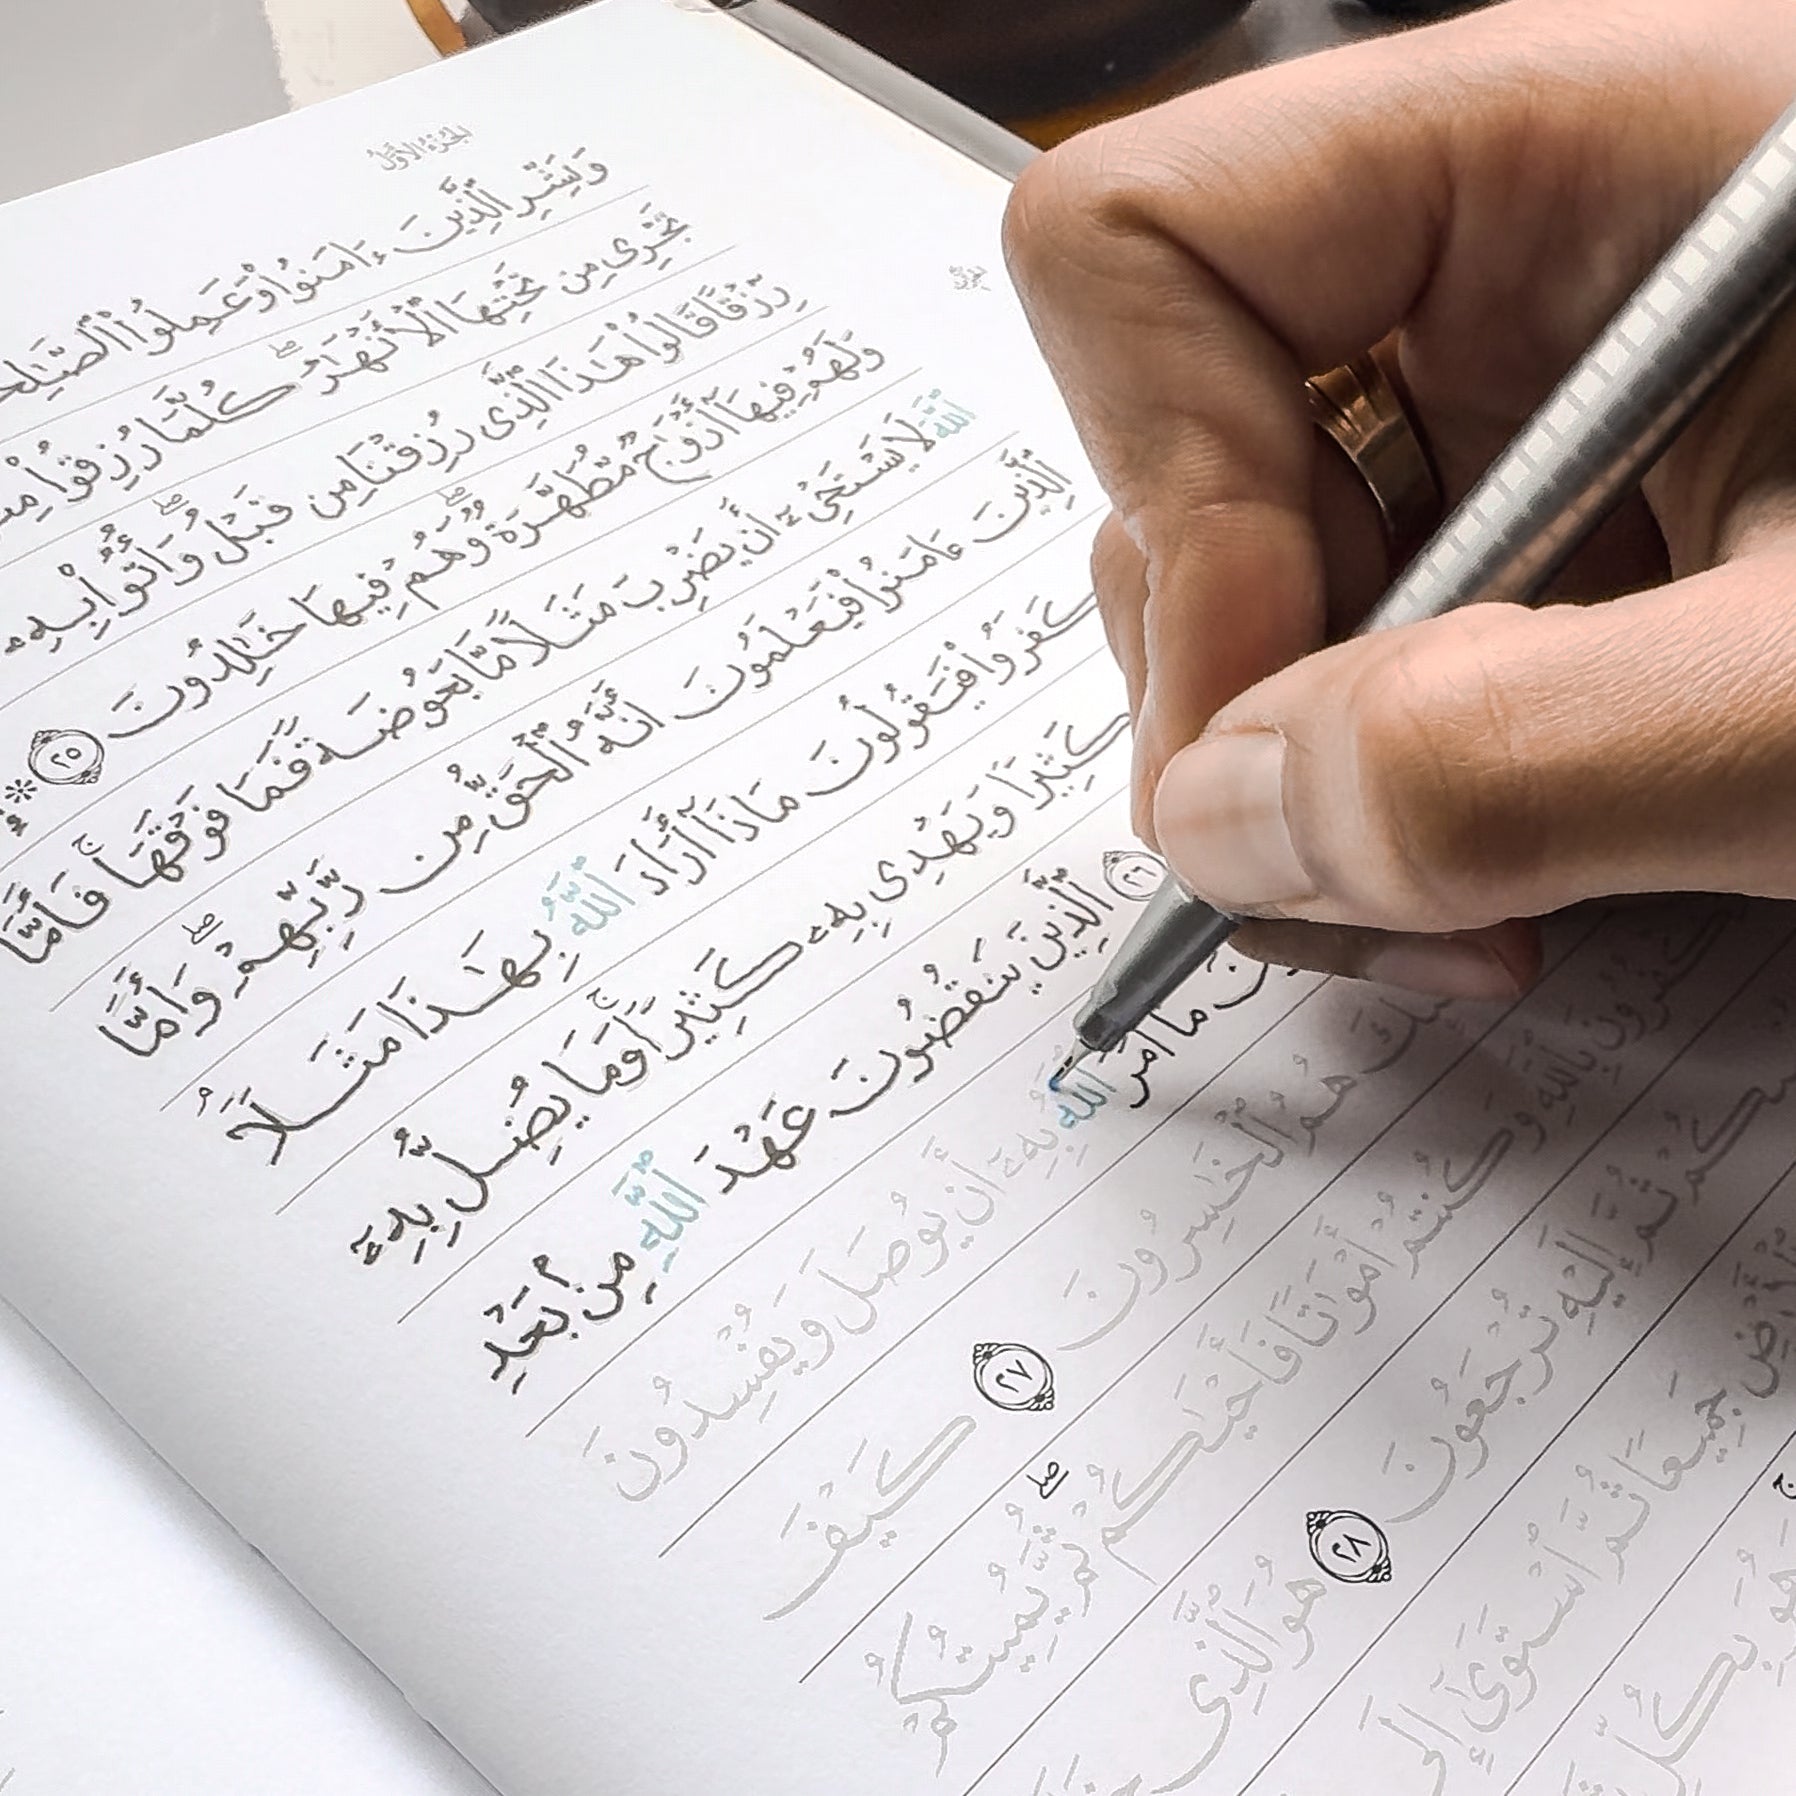 الجزء الأول
وَبَشِّرِ ٱلَّذِينَ ءَامَنُوا۟ وَعَمِلُوا۟ ٱلصَّـٰلِحَـ
تَجْرِى مِن تَحْتِهَا ٱلْأَنْهَـٰرُ ۖ كُلَّمَا رُزِقُوا۟ مِنْـ
رِّزْقًا قَالُوا۟ هَـٰذَا ٱلَّذِى رُزِقْنَا مِن قَبْلُ ۖ وَأُتُوا۟ بِهِۦ
وَلَهُمْ فِيهَآ أَزْوَٰجٌ مُّطَهَّرَةٌ ۖ وَهُمْ فِيهَا خَـٰلِدُونَ ٢٥ ۞
ٱللَّهَ لَا يَسْتَحْىِۦٓ أَن يَضْرِبَ مَثَلًا مَّا بَعُوضَةً فَمَا فَوْقَهَا ۚ فَأَمَّا
ٱلَّذِينَ ءَامَنُوا۟ فَيَعْلَمُونَ أَنَّهُ ٱلْحَقُّ مِن رَّبِّهِمْ ۖ وَأَمَّا
كَفَرُوا۟ فَيَقُولُونَ مَاذَآ أَرَادَ ٱللَّهُ بِهَـٰذَا مَثَلًا ۘ
كَثِيرًا وَيَهْدِى بِهِۦ كَثِيرًا ۚ وَمَا يُضِلُّ بِهِۦٓ
٢٦ ٱلَّذِينَ يَنقُضُونَ عَهْدَ ٱللَّهِ مِنۢ بَعْدِ
ـونَ مَآ أَمَرَ ٱللَّهُ بِهِۦٓ أَن يُوصَلَ وَيُفْسِدُونَ
ـئِكَ هُمُ ٱلْخَـٰسِرُونَ ٢٧ كَيْفَ
تَكْفُرُونَ بِٱللَّهِ وَكُنتُمْ أَمْوَٰتًا فَأَحْيَـٰكُمْ ۖ ثُمَّ يُمِيتُكُمْ
ـيكُمْ ثُمَّ إِلَيْهِ تُرْجَعُونَ ٢٨ هُوَ ٱلَّذِى
ٱلْأَرْضِ جَمِيعًا ثُمَّ ٱسْتَوَىٰٓ إِلَى
ۚ وَهُوَ بِكُلِّ